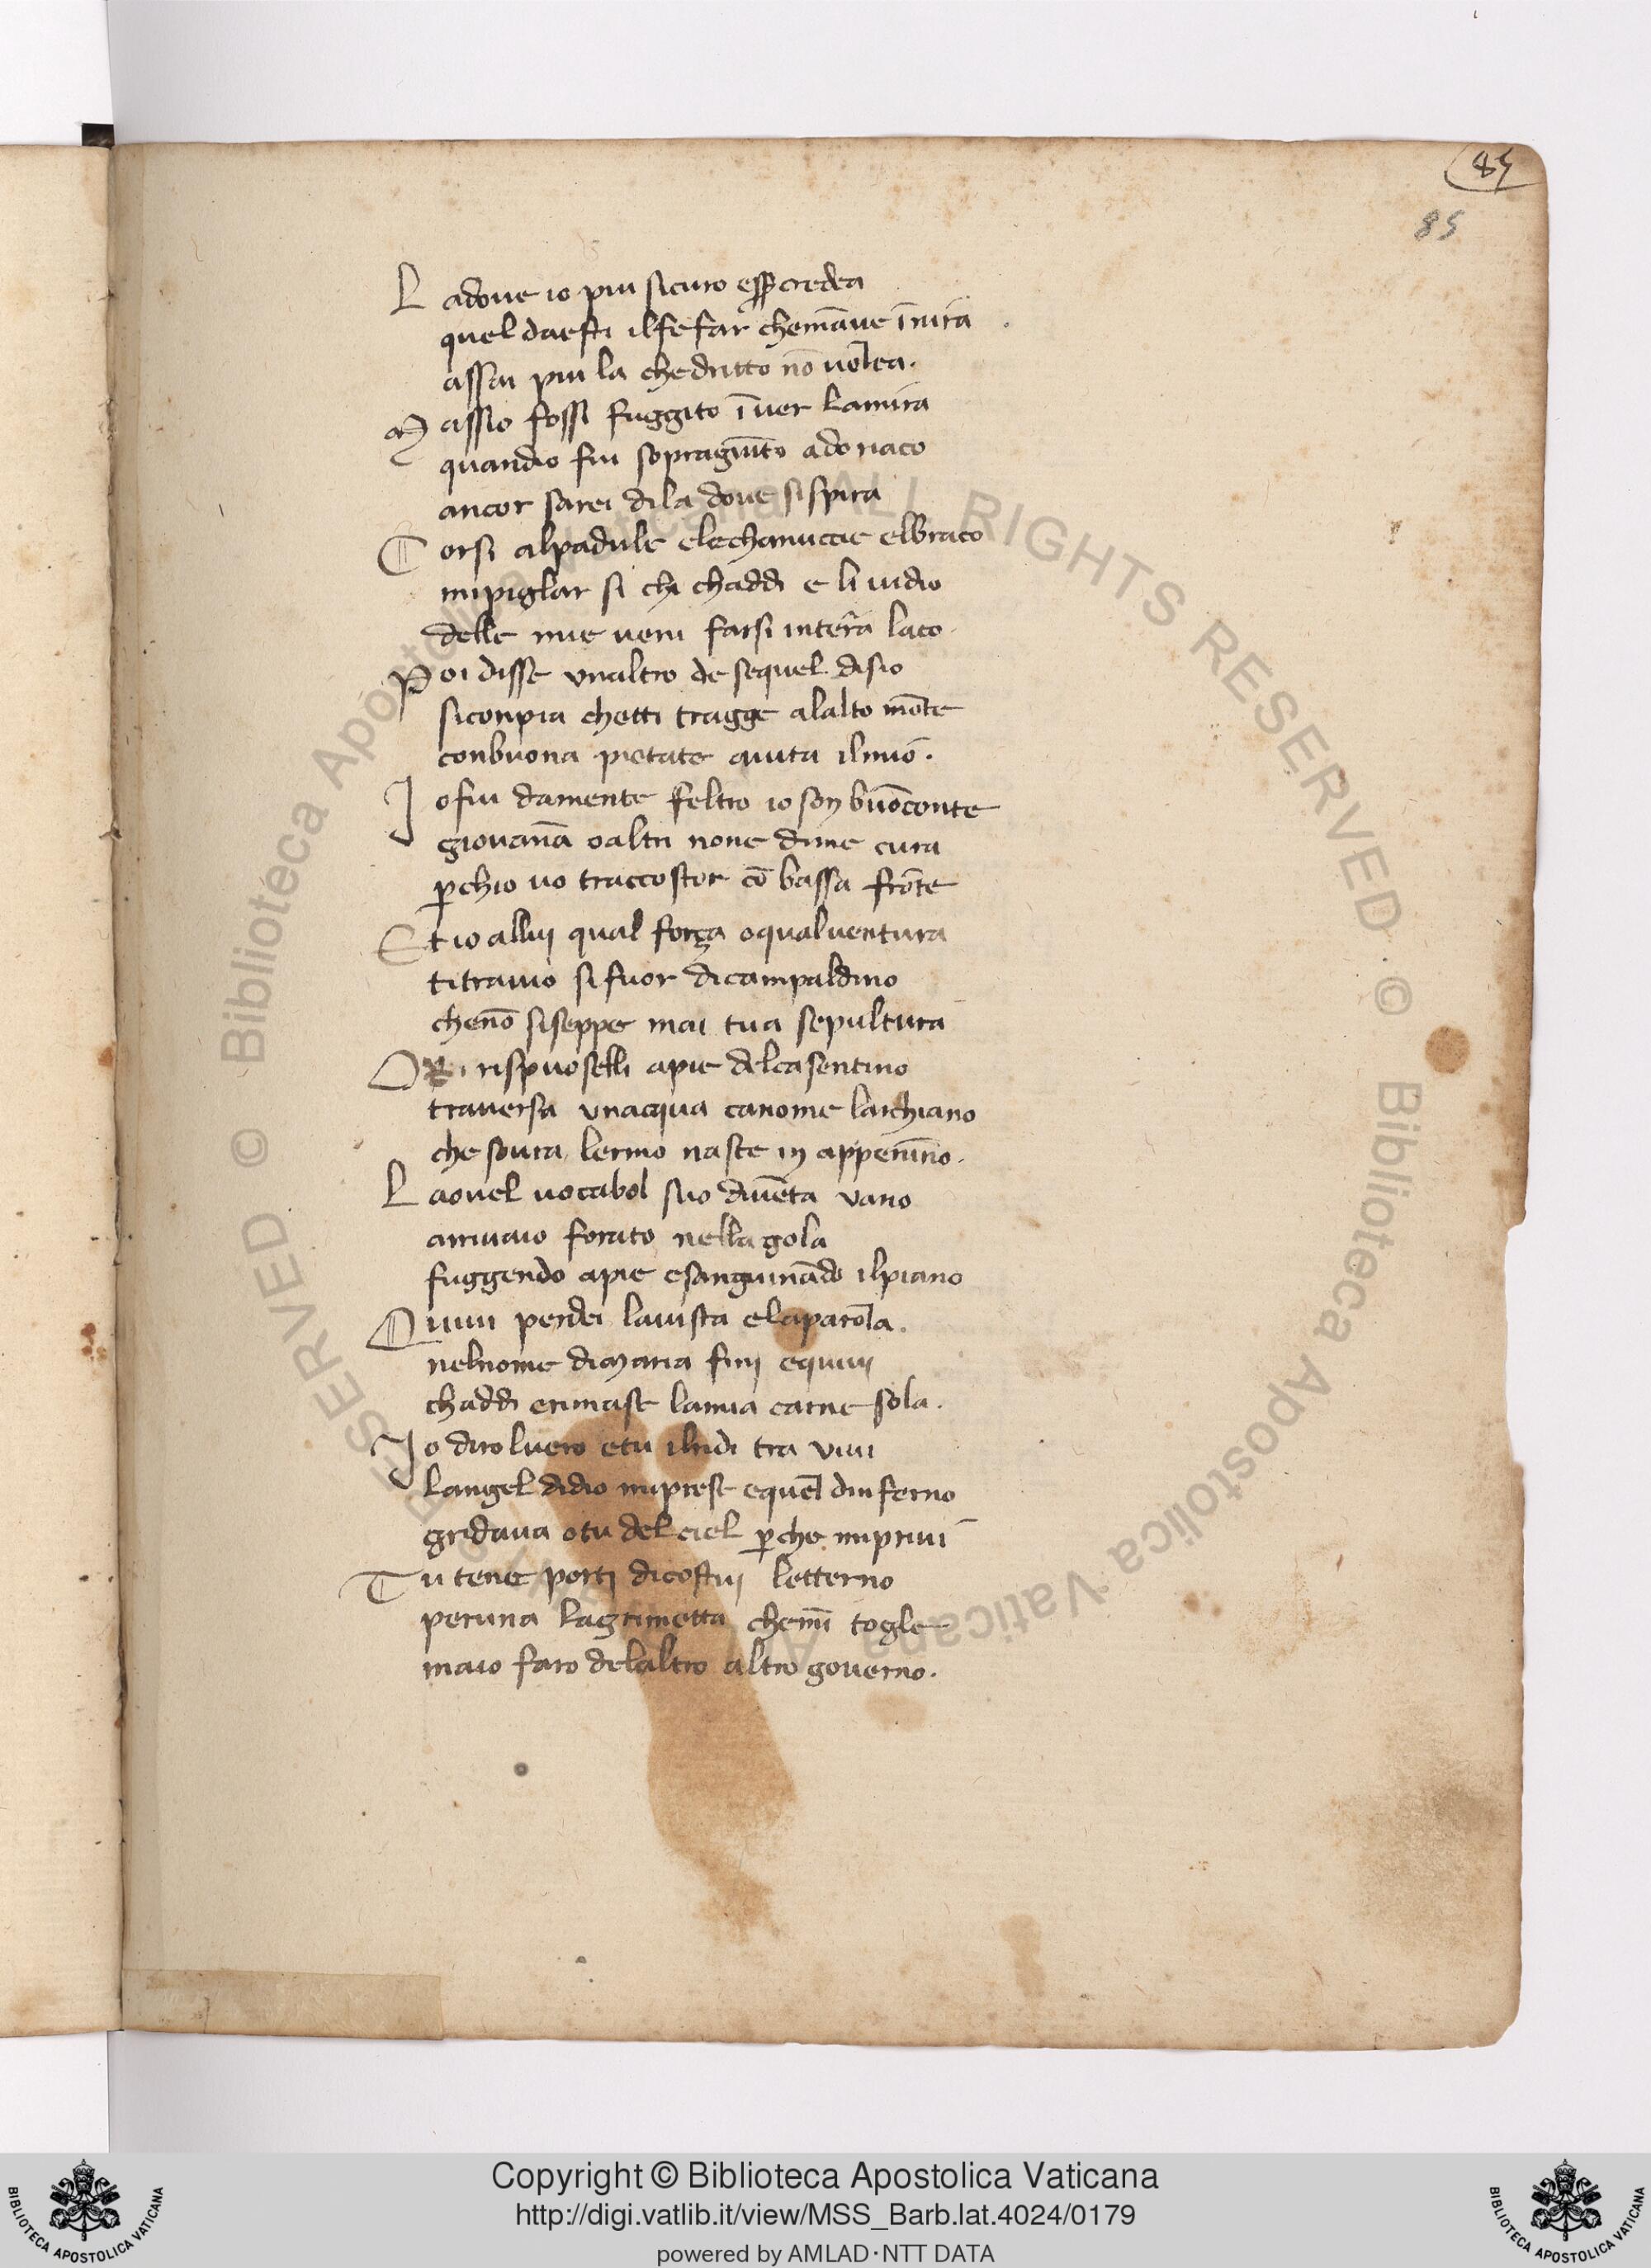 85
85
L adoue io piu sicuro esser credea
quel daesti ilfefar chemāue ī nira
assai piu la chedritto nō uolea.
M assio fossi fuggito ī uer lamira
quandio fui sopragiūto adoriaco
ancor sarei dila doue sispira
C orsi alpadule elechannucce elbraco
mipiglar si chi chaddi e li uidio
delle mie ueni farsi interra laco.
P oi disse vnaltro de sequel disio
siconpia chetti tragge alalto mōte
conbuona pietate aiuta ilmio.
I ofui damonte feltro io son buōconte
giouāna oaltri none dime cura
p̱chio uo traccostor cō bassa frōte
E t io allui qual força oqualuentura
titrauio sifuor dicampaldino
chenō siseppe mai tua sepultura
O i rispuoselli apie delcasentino
trauersa vnacqua canome larchiano
che soura lermo nasce in appenīno.
L aouel uocabol suo diuēta vano
arriuaio forato nella gola
fuggendo apie esanguināde ilpiano
Q uiui perdei lauista elaparola.
nelnome dimaria finij equiui
chaddi erimase lamia carne sola.
I o diro luero etu ilridi tra viui
langel didio miprese equel dinferno
gridaua otu del ciel p̱che mipriui
T u tene porti dicostui letterno
peruna lagrimetta chemī togle
maio faro delaltro altro gouerno.
© Biblioteca Apostolica Vaticana ALL RIGHTS RESERVED · © Biblioteca Apostolica Vaticana ALL RIGHTS RESERVED
Copyright © Biblioteca Apostolica Vaticana
http://digi.vatlib.it/view/MSS_Barb.lat.4024/0179
powered by AMLAD·NTT DATA
BIBLIOTECA APOSTOLICA VATICANA
BIBLIOTECA APOSTOLICA VATICANA